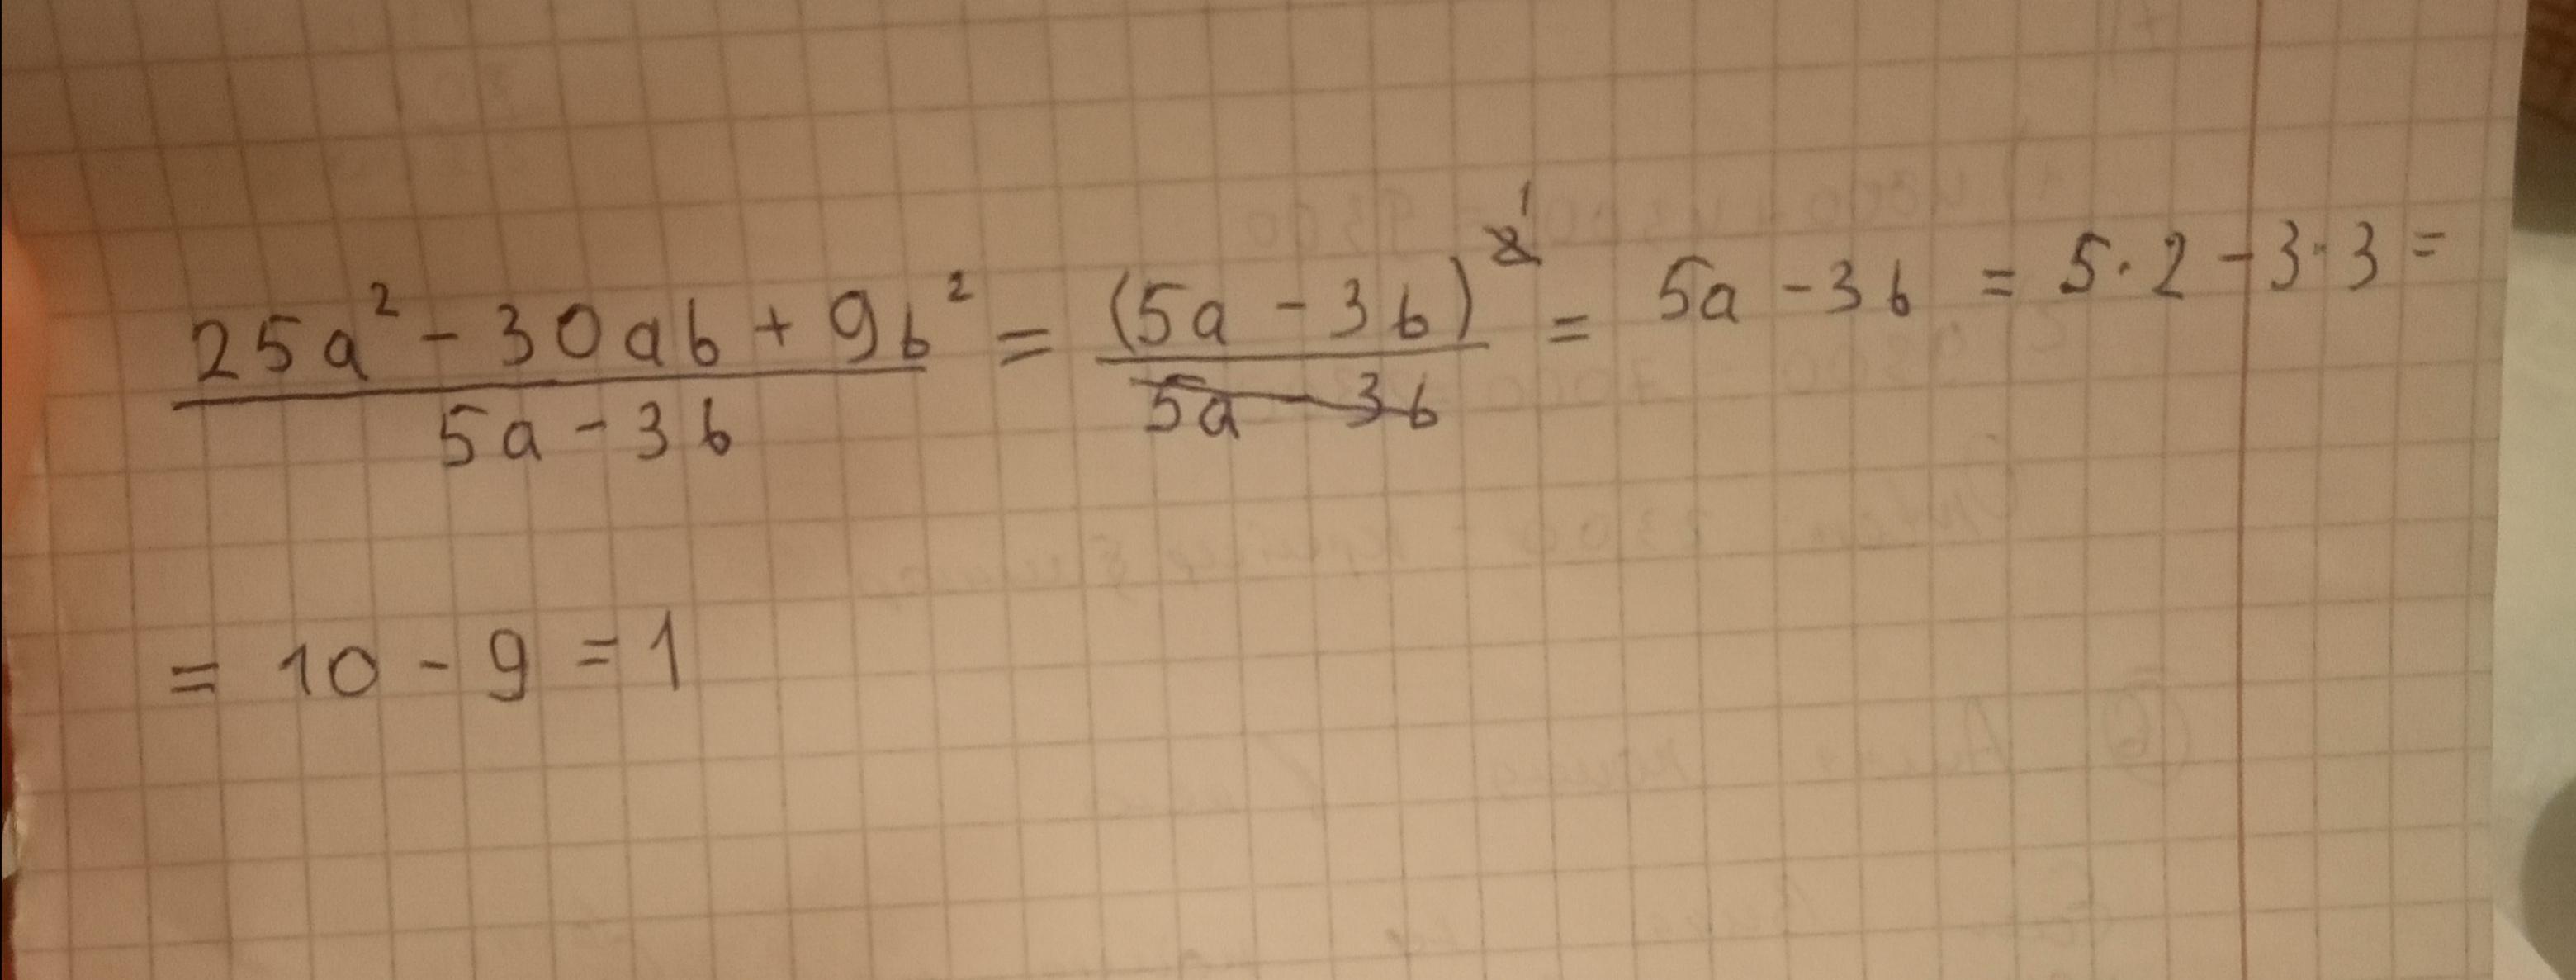 25a² - 30ab + 9b² / 5a - 3b = (5a - 3b)²¹ / 5a - 3b = 5a - 3b = 5·2 - 3·3 =
= 10 - 9 = 1